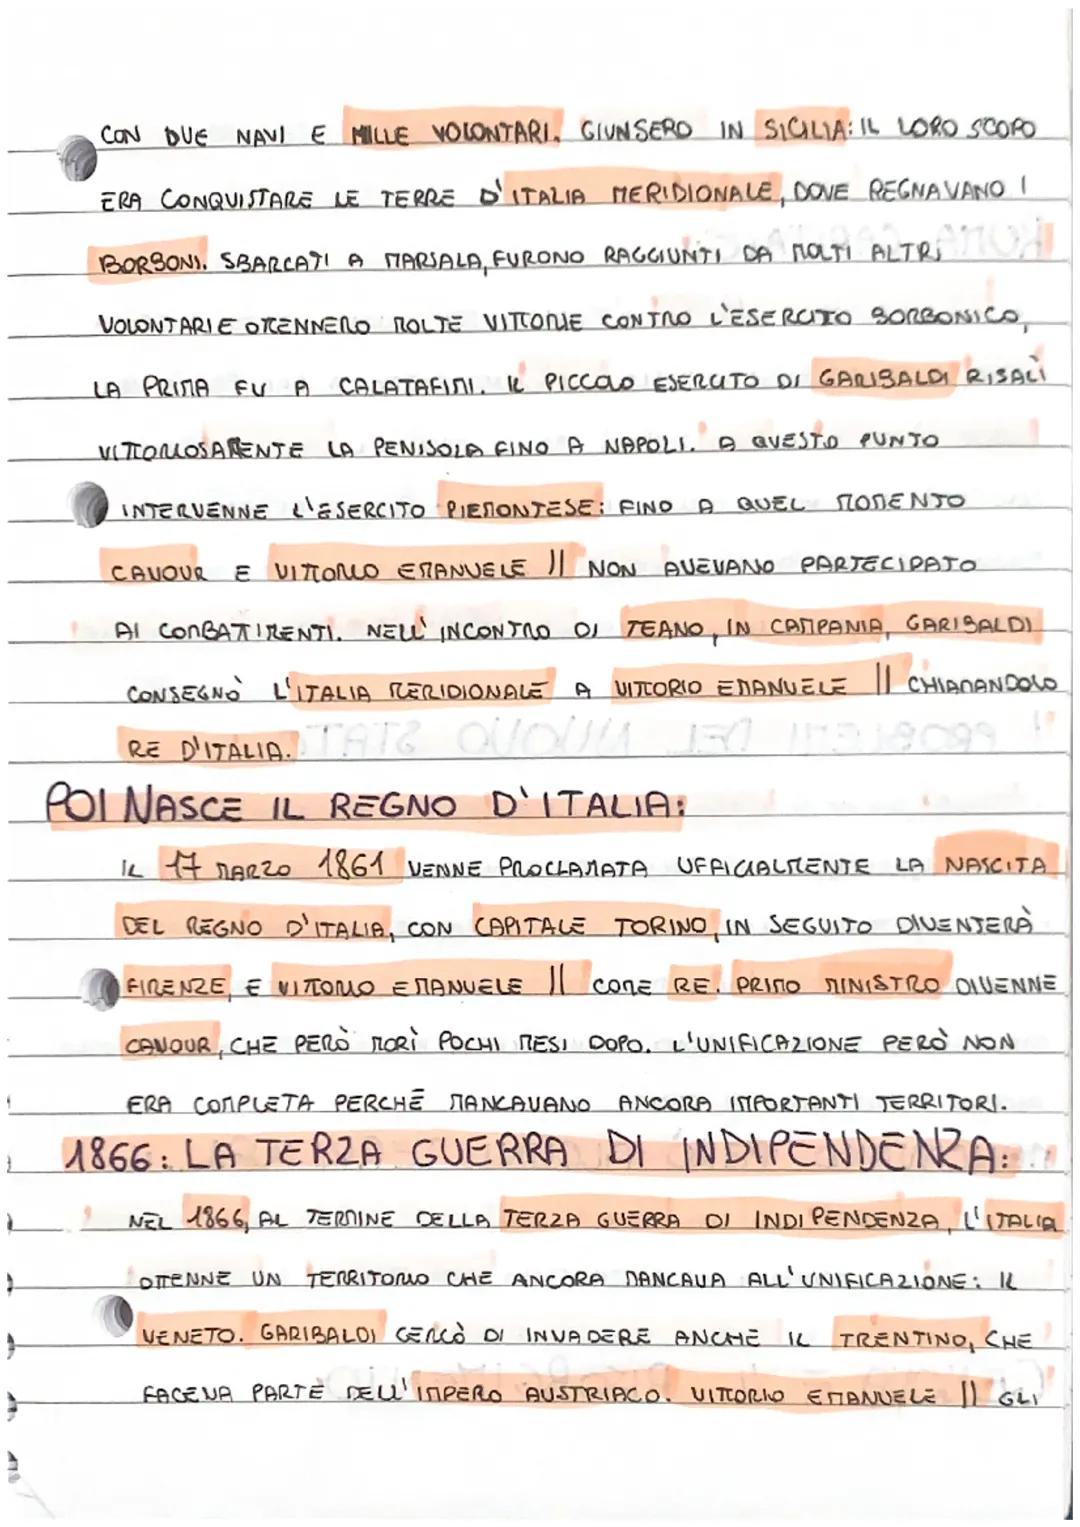 CON DUE NAVI E MILLE VOLONTARI. GIUNSERO IN SICILIA: IL LORO SCOPO
ERA CONQUISTARE LE TERRE D'ITALIA MERIDIONALE, DOVE REGNAVANO I
BORBONI. SBARCATI A MARSALA, FURONO RAGGIUNTI DA MOLTI ALTRI
VOLONTARI E OTTENNERO MOLTE VITTORIE CONTRO L'ESERCITO BORBONICO,
LA PRIMA FU A CALATAFIMI. IL PICCOLO ESERCITO DI GARIBALDI RISALÌ
VITTORIOSAMENTE LA PENISOLA FINO A NAPOLI. A QUESTO PUNTO
INTERVENNE L'ESERCITO PIEMONTESE: FINO A QUEL MOMENTO
CAVOUR E VITTORIO EMANUELE II NON AVEVANO PARTECIPATO
AI COMBATTIMENTI. NELL'INCONTRO DI TEANO, IN CAMPANIA, GARIBALDI
CONSEGNÒ L'ITALIA MERIDIONALE A VITTORIO EMANUELE II CHIAMANDOLO
RE D'ITALIA.
POI NASCE IL REGNO D'ITALIA:
IL 17 MARZO 1861 VENNE PROCLAMATA UFFICIALMENTE LA NASCITA
DEL REGNO D'ITALIA, CON CAPITALE TORINO, IN SEGUITO DIVENTERÀ
FIRENZE, E VITTORIO EMANUELE II COME RE. PRIMO MINISTRO DIVENNE
CAVOUR, CHE PERÒ MORÌ POCHI MESI DOPO. L'UNIFICAZIONE PERÒ NON
ERA COMPLETA PERCHÉ MANCAVANO ANCORA IMPORTANTI TERRITORI.
1866: LA TERZA GUERRA DI INDIPENDENZA:
NEL 1866, AL TERMINE DELLA TERZA GUERRA DI INDIPENDENZA, L'ITALIA
OTTENNE UN TERRITORIO CHE ANCORA MANCAVA ALL'UNIFICAZIONE: IL
VENETO. GARIBALDI CERCÒ DI INVADERE ANCHE IL TRENTINO, CHE
FACEVA PARTE DELL'IMPERO AUSTRIACO. VITTORIO EMANUELE II GLI